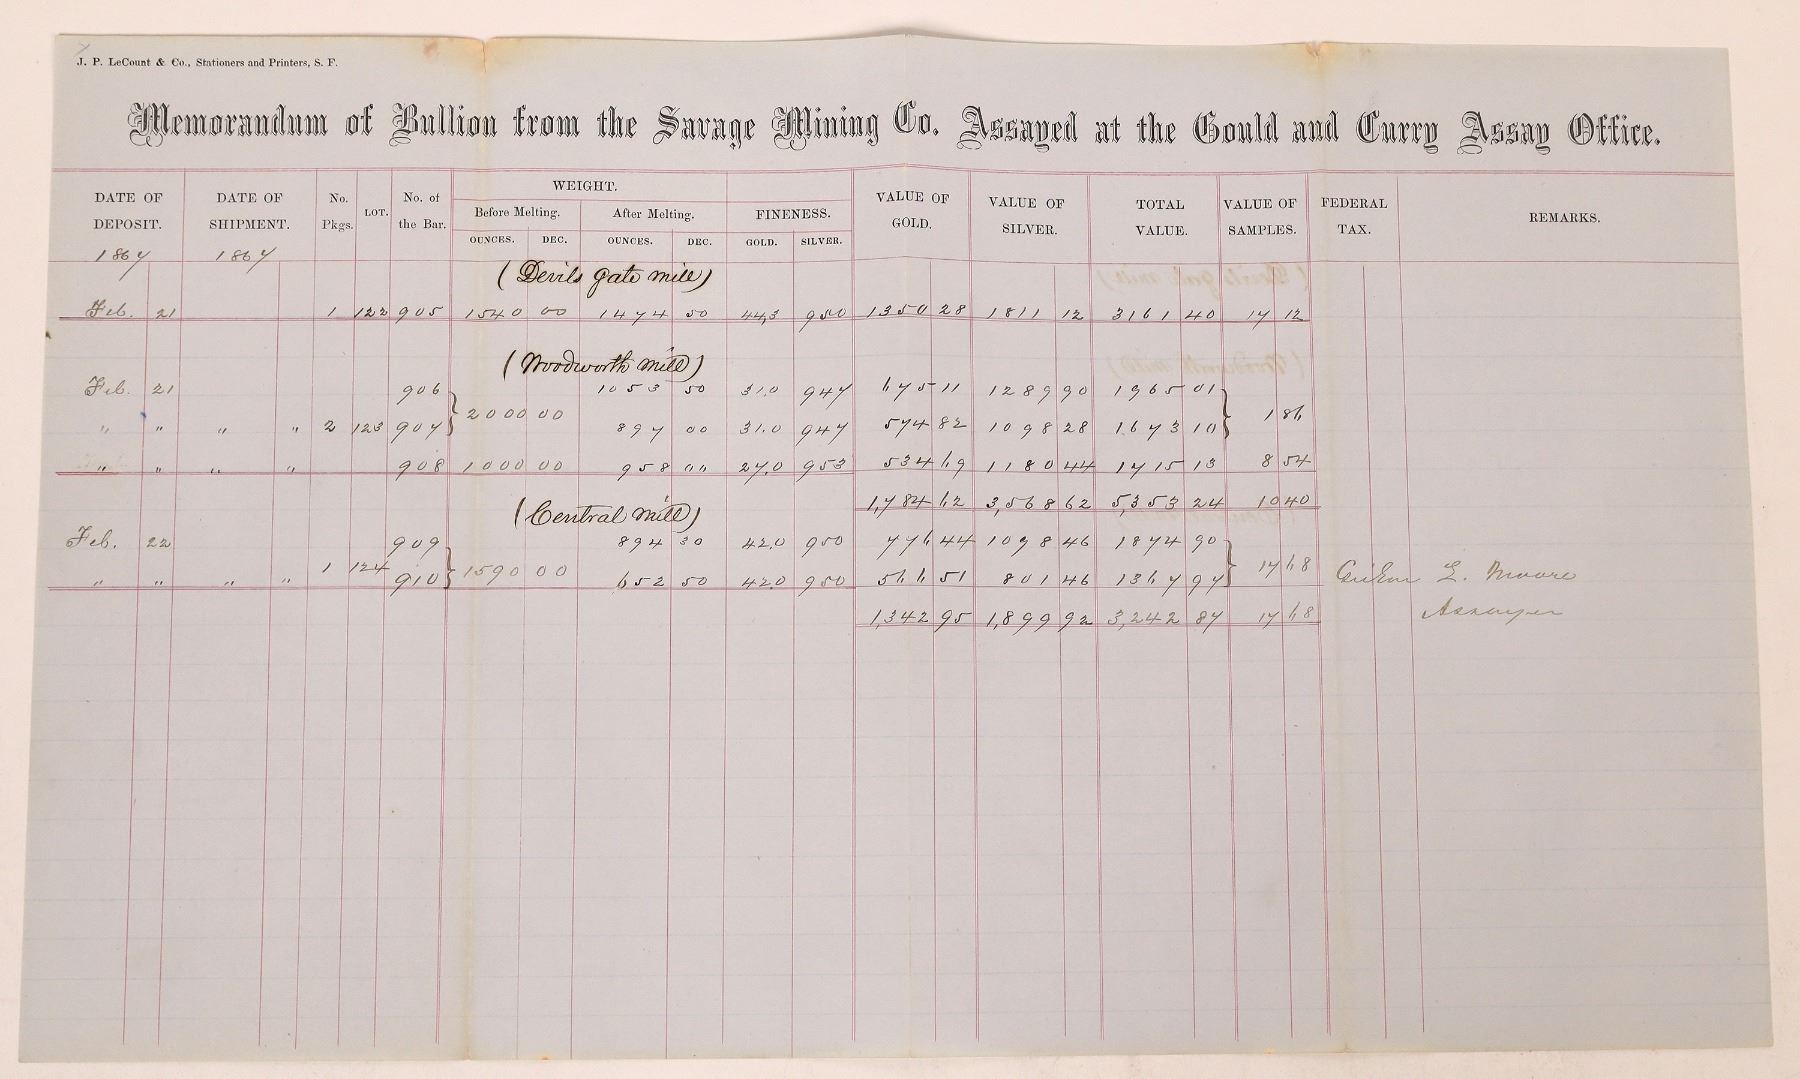 J. P. LeCount & Co., Stationers and Printers, S. F.
Memorandum of Bullion from the Savage Mining Co. Assayed at the Gould and Curry Assay Office.
DATE OF DEPOSIT. DATE OF SHIPMENT. No. Pkgs. LOT. No. of the Bar. WEIGHT. Before Melting. OUNCES. DEC. After Melting. OUNCES. DEC. FINENESS. GOLD. SILVER. VALUE OF GOLD. VALUE OF SILVER. TOTAL VALUE. VALUE OF SAMPLES. FEDERAL TAX. REMARKS.
1867 1867
(Devils gate mill)
Feb. 21 1 122 905 1540 00 1474 50 44,3 950 1350 28 1811 12 3161 40 17 12
(Woodworth mill)
Feb. 21 906 1053 50 31.0 947 675 11 1289 90 1965 01
" " " " 2 123 907 } 2000 00 897 00 31.0 947 574 82 1098 28 1673 10 } 1 86
" " " " 908 1000 00 958 00 27,0 953 534 69 1180 44 1715 13 8 54
1,784 62 3,568 62 5,353 24 10 40
(Central mill)
Feb. 22 909 894 30 42.0 950 776 44 1098 46 1874 90
" " " " 1 124 910 } 1590 00 652 50 42.0 950 566 51 801 46 1367 97 } 17 68 Gideon E. Moore
1,342 95 1,899 92 3,242 87 17 68 Assayer